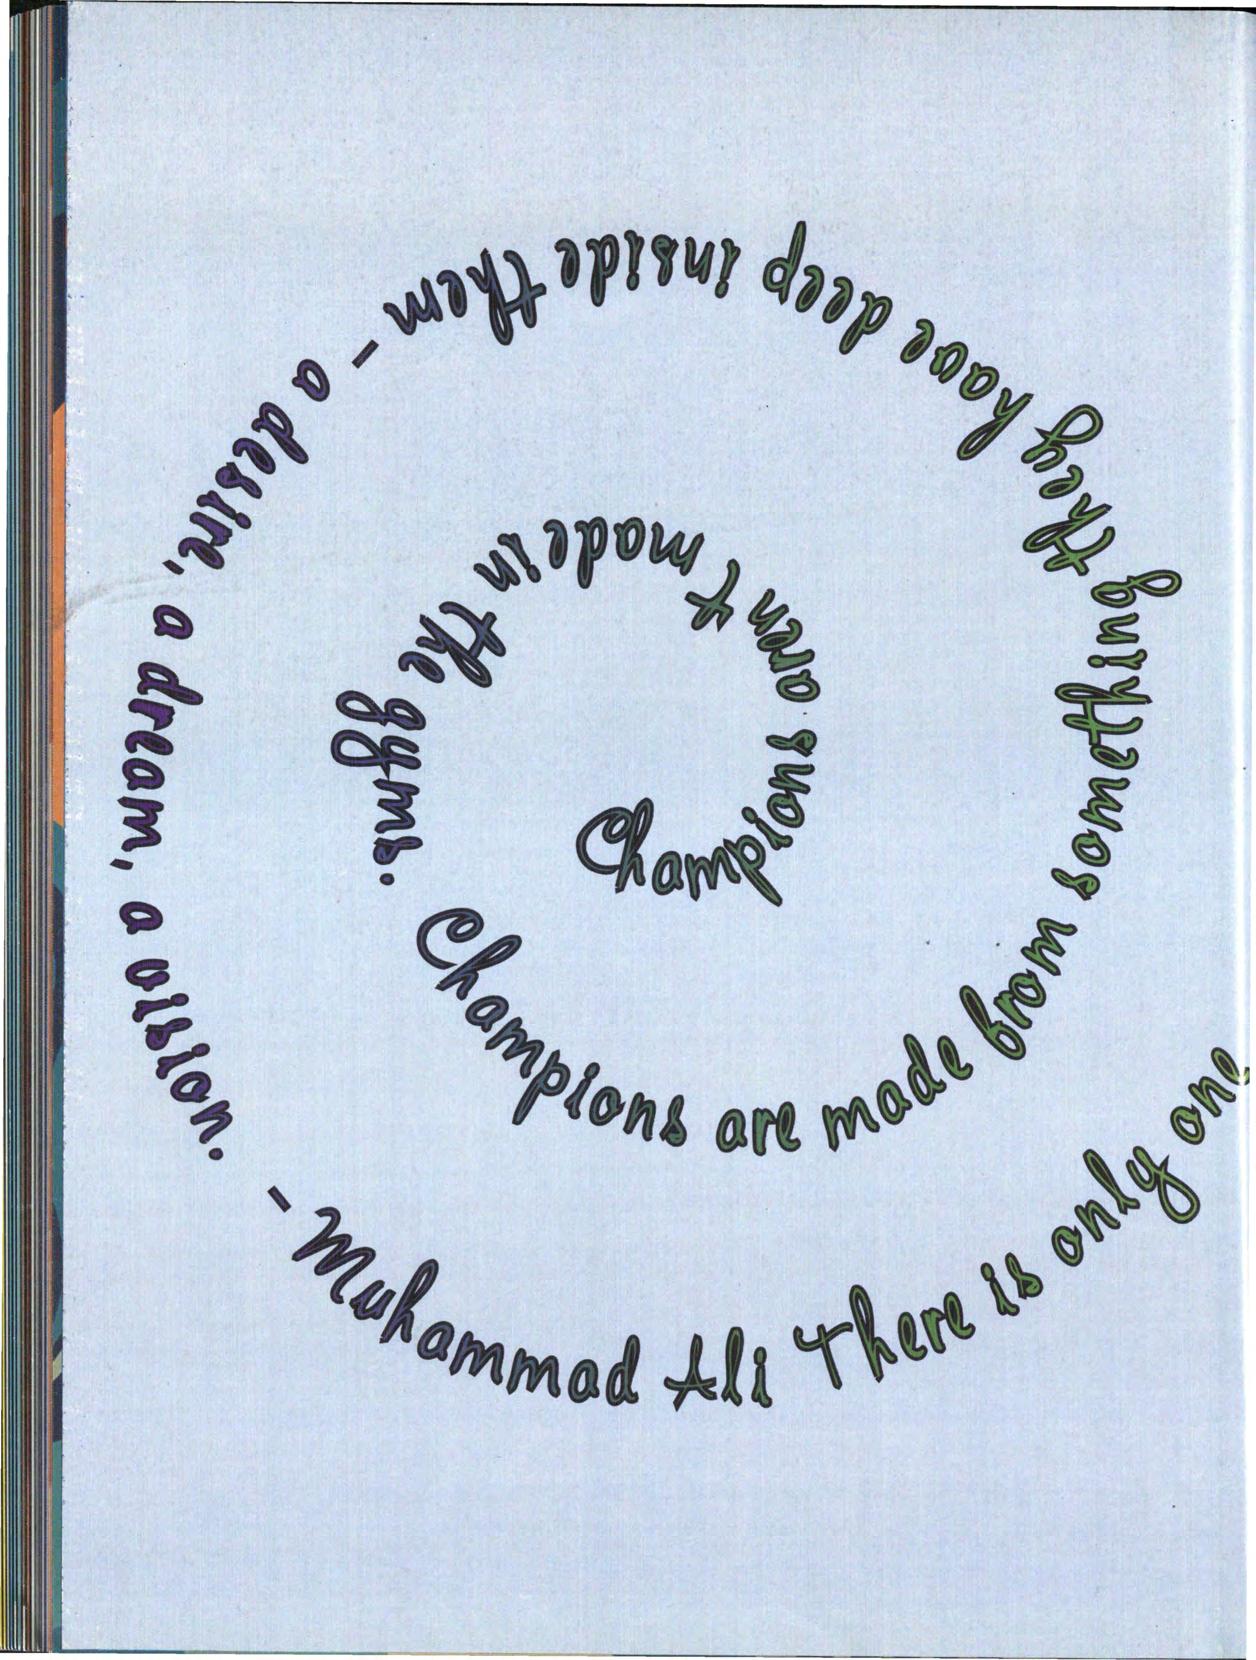 Champions aren't made in the gyms. Champions are made from something they have deep inside them - a desire, a dream, a vision. - Muhammad Ali There is only one